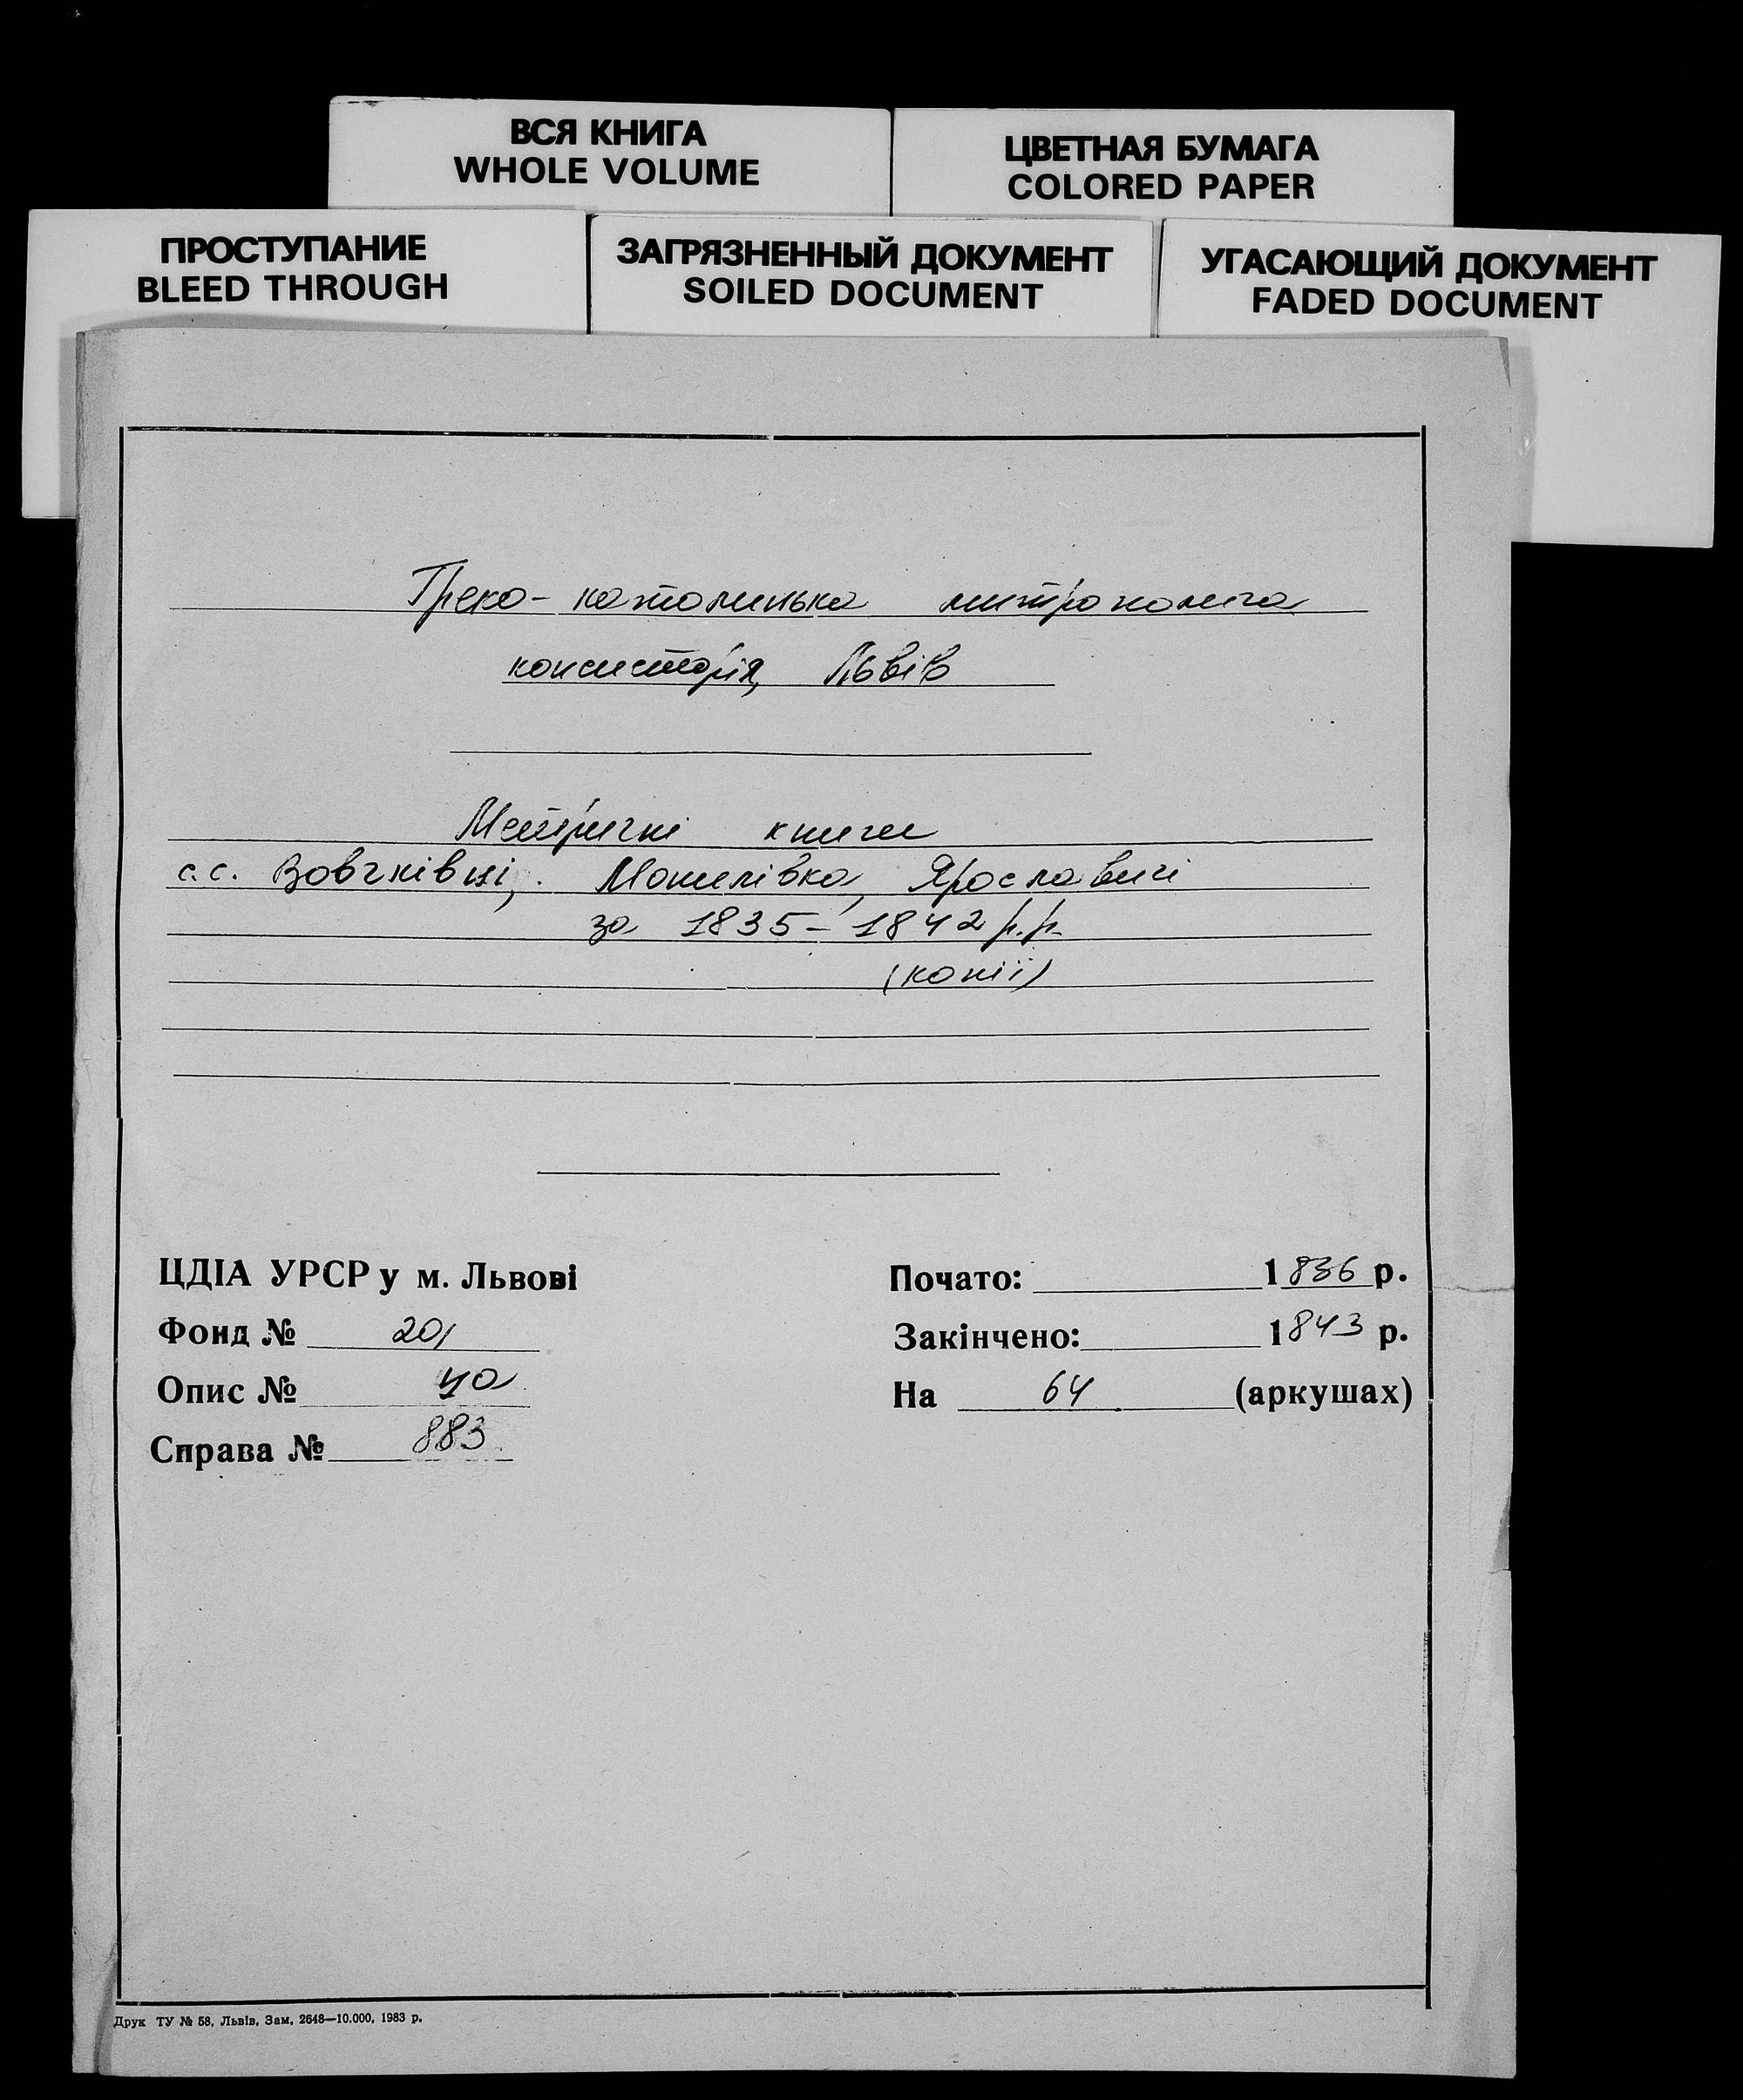 ВСЯ КНИГА
WHOLE VOLUME
ЦВЕТНАЯ БУМАГА
COLORED PAPER
ПРОСТУПАНИЕ
BLEED THROUGH
ЗАГРЯЗНЕННЫЙ ДОКУМЕНТ
SOILED DOCUMENT
УГАСАЮЩИЙ ДОКУМЕНТ
FADED DOCUMENT
Греко-католицька митрополича
консисторія, Львів
Метричні книги
с.с. Вовчківці, Монилівка, Ярославичі
за 1835-1842 р.р.
(копії)
ЦДІА УРСР у м. Львові
Фонд № 201
Опис № 4а
Справа № 883
Почато: 1836 р.
Закінчено: 1843 р.
На 64 (аркушах)
Друк ТУ № 58, Львів, Зам. 2648—10.000, 1983 р.